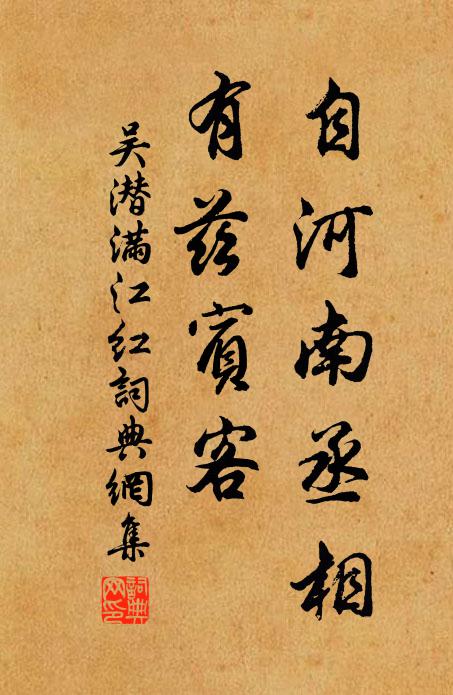 自河南丞相
有兹賓客
吴潜满江红詞典網集
詞典網印